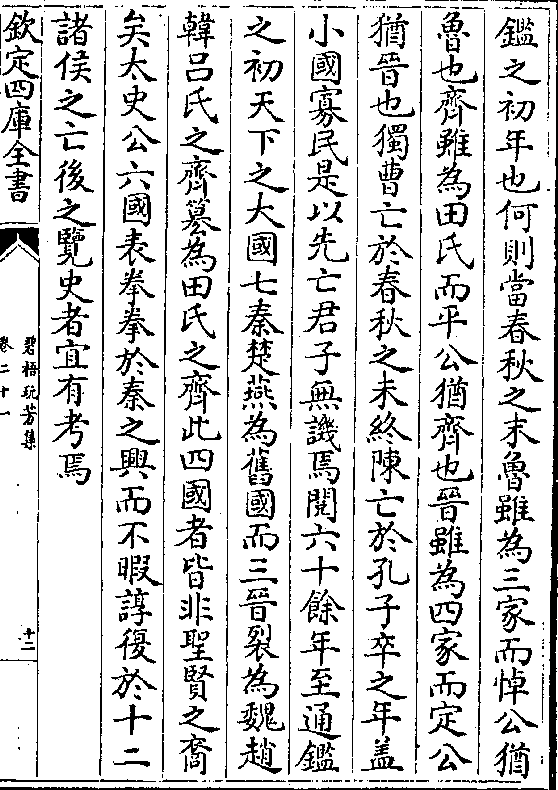 鑑之初年也何則當春秋之末魯雖為三家而悼公猶
魯也齊雖為田氏而平公猶齊也晉雖為四家而定公
猶晉也獨曹亡於春秋之未終陳亡於孔子卒之年盖
小國寡民是以先亡君子無譏焉閱六十餘年至通鑑
之初天下之大國七秦楚燕為舊國而三晉裂為魏趙
韓呂氏之齊簒為田氏之齊此四國者皆非聖賢之裔
矣太史公六國表拳拳於秦之興而不暇諄復於十二
諸侯之亡後之覽史者宜有考焉
欽定四庫全書
碧梧玩芳集
卷二十一
十二